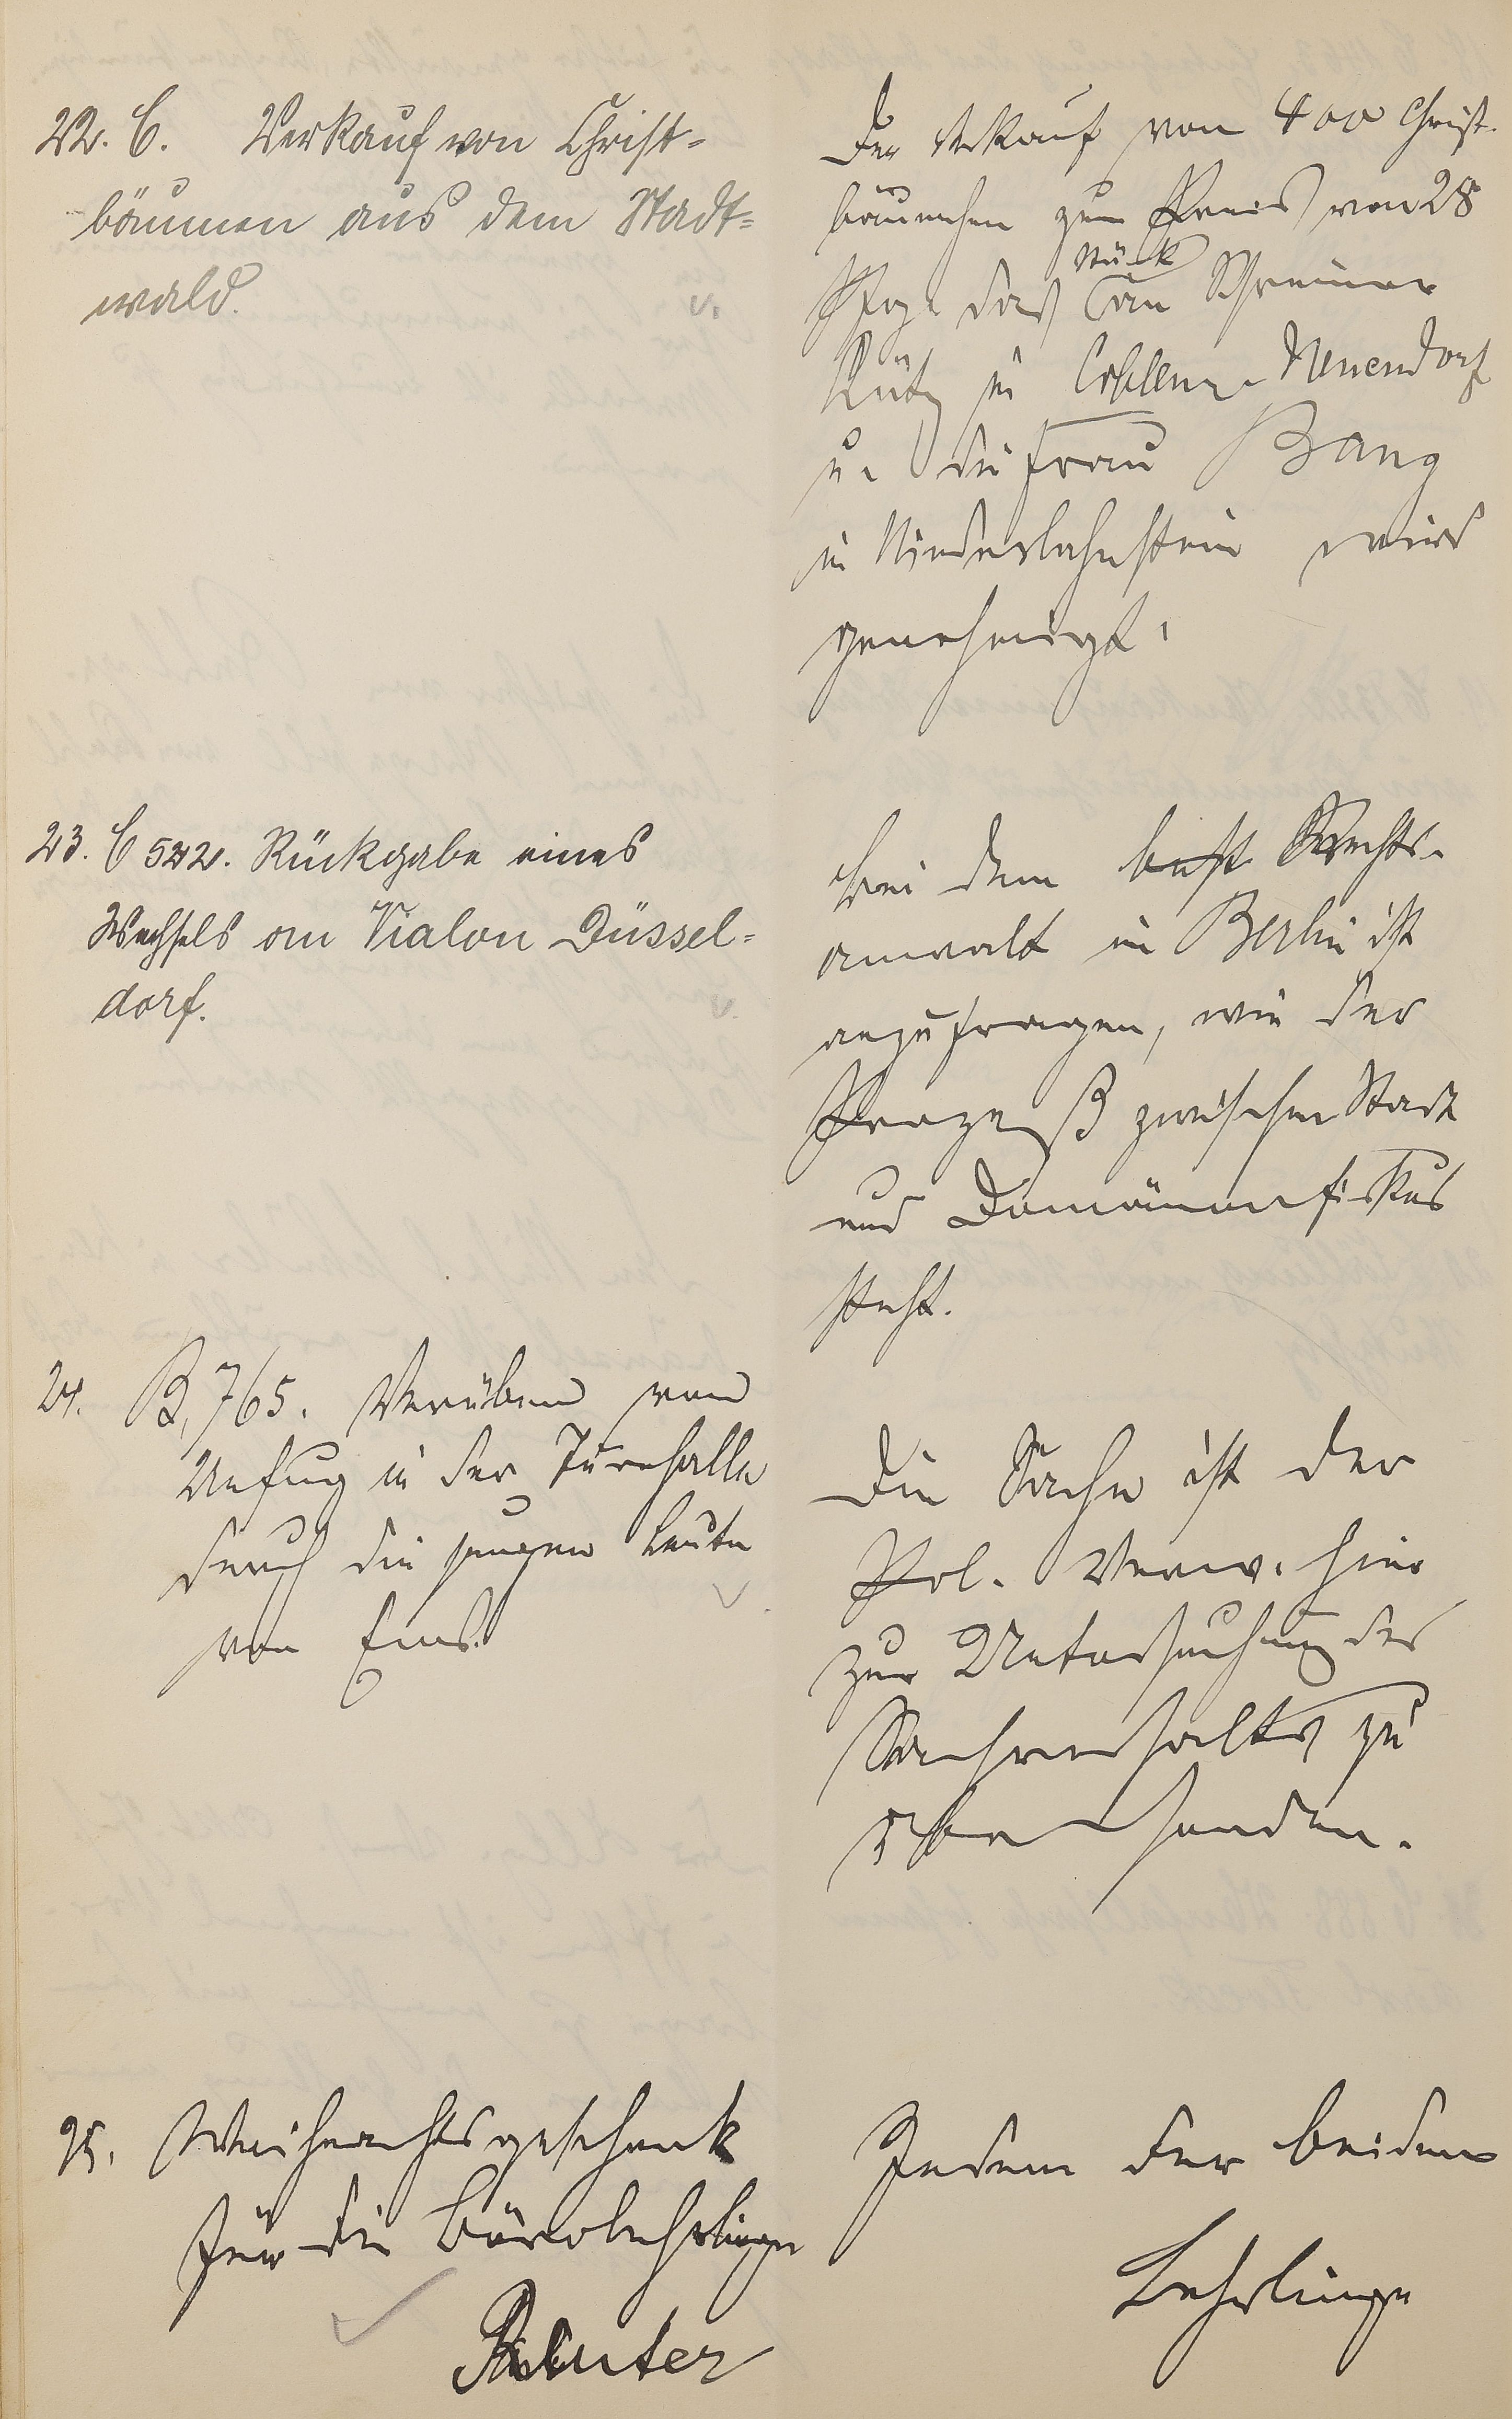 22. C. Verkauf von Christ-
bäumen aus dem Stadt-
wald.
Der Verkauf von 400 Christ-
bäumchen zum Preis von 28
Pfg. das Stück an Schreiner
Kütz in Coblenz-Neuendorf
u. die Frau Bang
in Niederlahnstein wird
genehmigt.
23. C 522. Rückgabe eines
Wechsels an Vialon Düssel-
dorf.
Bei dem Rechts-
anwalt in Berlin ist
anzufragen, wie der
Prozeß zwischen Stadt
und Domänenfiskus
steht.
24. B, 765. Verüben von
Unfug in der Turnhalle
durch die jungen Leute
von Ems.
Die Sache ist der
Pol. Verw. hier
zur Untersuchung des
Sachverhaltes zu
übersenden.
25. Weihnachtsgeschenk
für die Bürolehrlinge
Reuter
Jedem der beiden
Lehrlinge